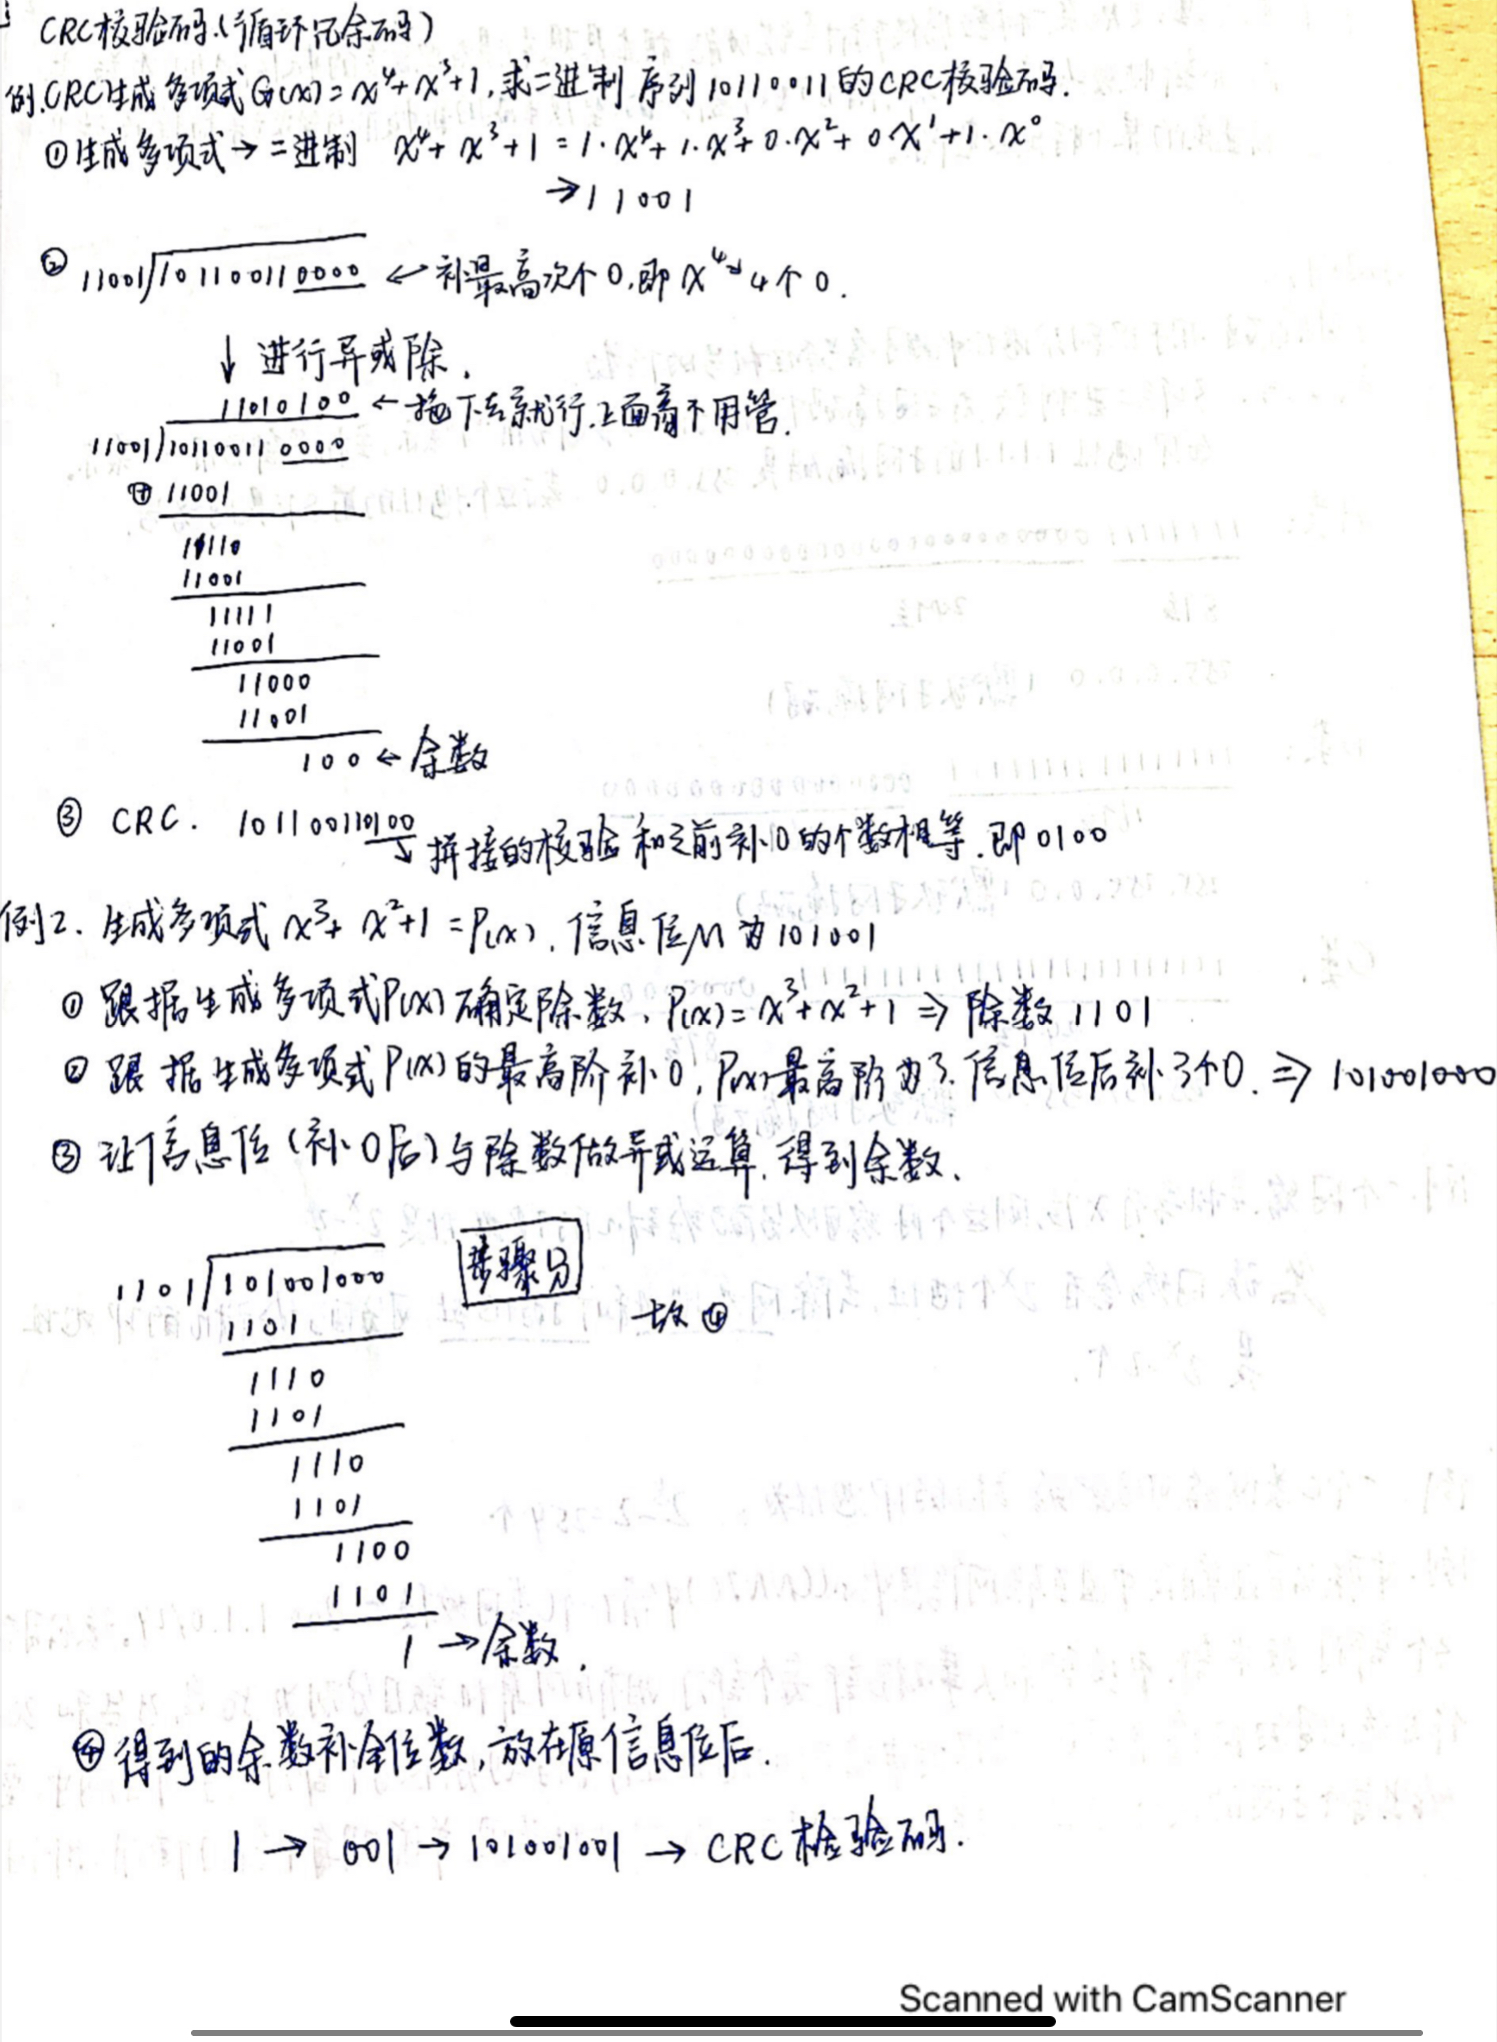 CRC校验码.(循环冗余码)
例.CRC生成多项式G(x)=x⁴+x³+1,求二进制序列10110011的CRC校验码.
①生成多项式→二进制 x⁴+x³+1=1·x⁴+1·x³+0·x²+0·x¹+1·x⁰
→11001
② 11001 101100110000 ←补最高次个0,即x⁴→4个0.
↓进行异或除.
11010100 ←拖下去就行.上面商不用管.
11001 101100110000
⊕11001
11110
11001
11111
11001
11000
11001
100←余数
③ CRC. 101100110100
拼接的校验和之前补0的个数相等.即0100
例2.生成多项式x³+x²+1=P(x),信息位M为101001
①跟据生成多项式P(x)确定除数.P(x)=x³+x²+1⇒除数1101
②跟据生成多项式P(x)的最高阶补0,P(x)最高阶为3.信息位后补3个0.⇒101001000
③让信息位(补0后)与除数做异或运算.得到余数.
1101 101001000 步骤分
1101 故④
1110
1101
1110
1101
1100
1101
1→余数.
④得到的余数补全位数,放在原信息位后.
1→001→101001001→CRC检验码.
Scanned with CamScanner